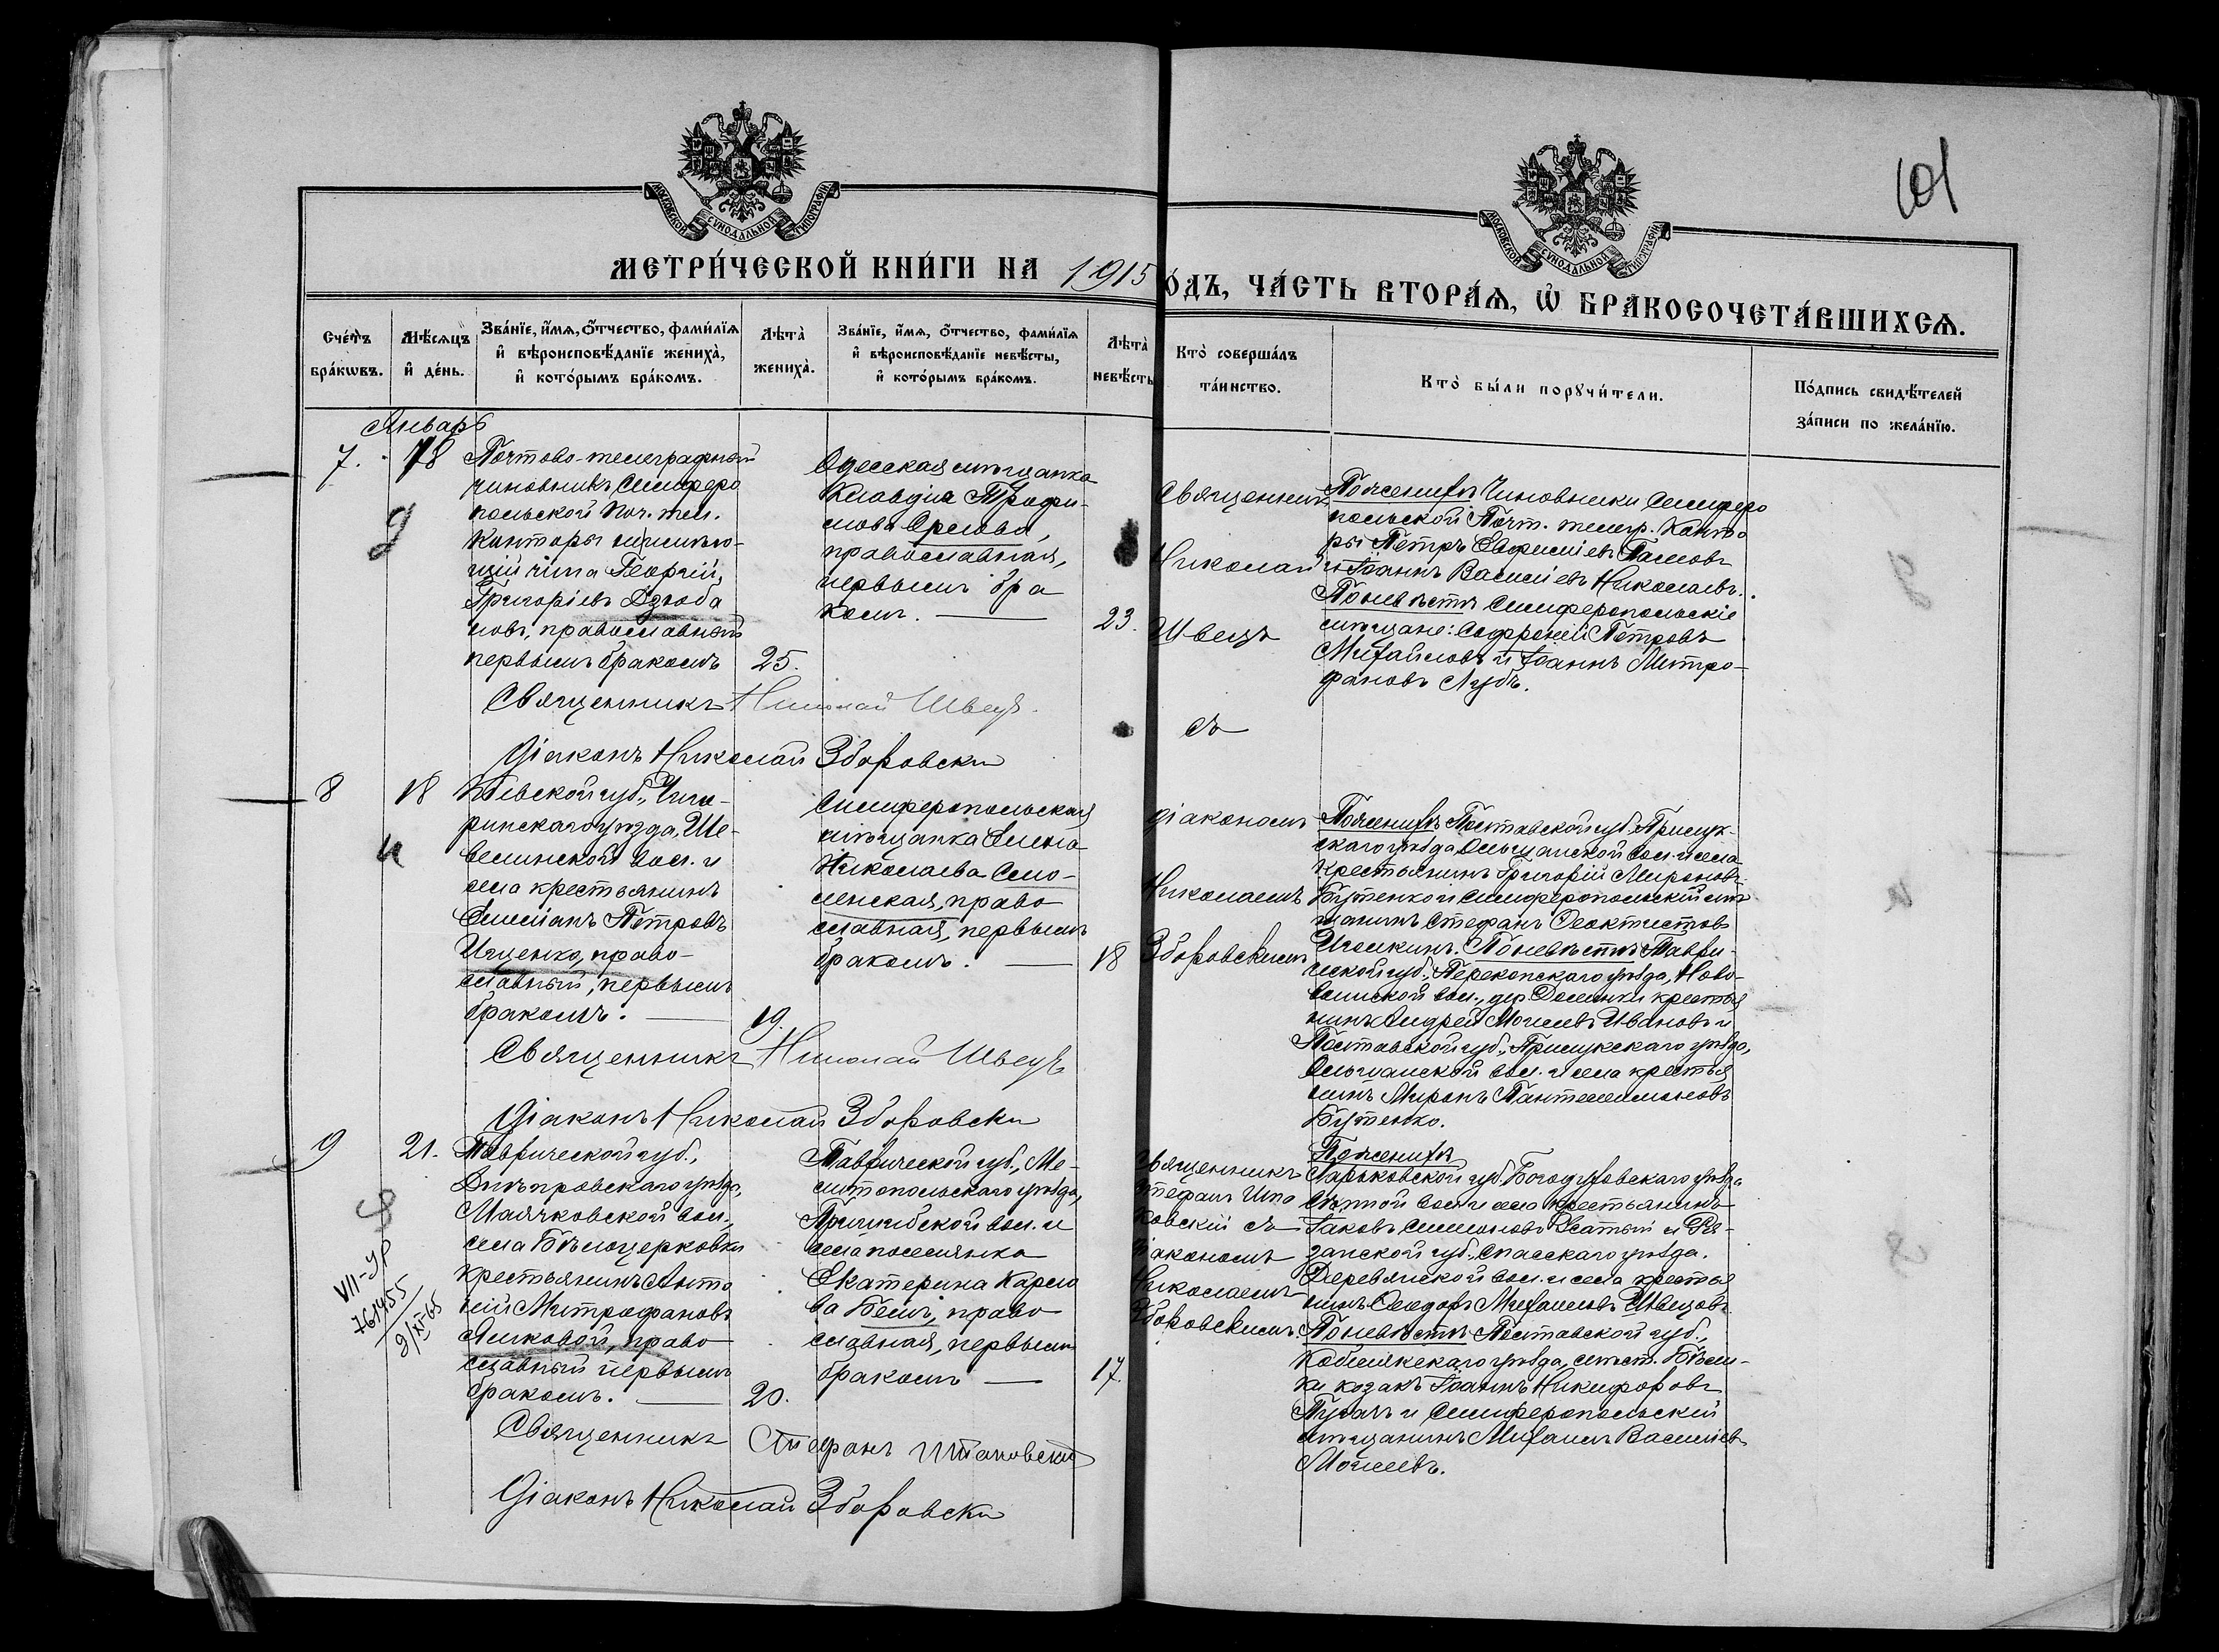 101
МОСКОВСКОЙ СУНОДАЛЬНОЙ ТИПОГРАФІИ
МОСКОВСКОЙ СУНОДАЛЬНОЙ ТИПОГРАФІИ
МЕТРИ́ЧЕСКОЙ КНИ́ГИ НА 1915
О́ДЪ, ЧА́СТЬ ВТОРА́Я, Ѡ БРАКОСОЧЕТА́ВШИХСЯ.
Сче́тъ бра́кѡвъ.
Мѣ́сяцъ и де́нь.
Зва́нїе, и́мя, ѻ́тчество, фами́лїя и вѣроисповѣ́данїе жениха̀, и кото́рымъ бра́комъ.
Лѣ́та жениха̀.
Зва́нїе, и́мя, ѻ́тчество, фами́лїя и вѣроисповѣ́данїе невѣ́сты, и кото́рымъ бра́комъ.
Лѣ́та невѣ́сты
Кто̀ соверша́лъ та́инство.
Кто̀ бы́ли порꙋчи́тели.
По́дпись свидѣ́телей за́писи по жела́нїю.
Январь
7.
18
Почтово-телеграфный
чиновникъ Симферо
польской Поч. тел.
Конторы неимѣю-
щій чина Георгій
Григоріевъ Дзюба
ловъ, православный
первымъ бракомъ
25.
Одесская мѣщанка
Клавдія Трофи-
мова Орлова,
православная,
первымъ бра
комъ.
23.
Священникъ
Николай
Швецъ
съ
По женихѣ Чиновники Симферо
польской Почт. телегр. Конто
ры Петръ Евфиміевъ Паловъ
и Іоаннъ Василіевъ Николаевъ.
По невѣстѣ Симферопольскіе
мѣщане: Софроній Петровъ
Михайловъ и Іоаннъ Митро-
фановъ Лубъ.
Священникъ Николай Швецъ
Діаконъ Николай Зборовски
8
18
Кіевской губ., Чиги-
ринскаго уѣзда, Ше-
велинской вол. и
села крестьянинъ
Емиліанъ Петровъ
Ищенко, право-
славный, первымъ
бракомъ.
19.
Симферопольская
мѣщанка Елена
Николаева Смо-
ленская, право
славная, первымъ
бракомъ.
18
діакономъ
Николаемъ
Зборовскимъ
По женихѣ Полтавской губ. Прилук-
скаго уѣзда Ольшанской вол. и села
крестьянинъ Григорій Мироновъ
Бутенко и Симферопольскій мѣ
щанинъ Стефанъ Феоктистовъ
По невѣстѣ Таври-
ческой губ., Перекопскаго уѣзда, Ново-
крестья
нинъ Андрей Моисеевъ Ивановъ и
Полтавской губ., Прилукскаго уѣзда,
Ольшанской вол. и села крестья
нинъ Миронъ Пантелеимоновъ
Бутенко.
Священникъ Николай Швецъ
Діаконъ Николай Зборовски
9
21.
VII-УР
761455
9/XI-65
Таврической губ.,
Днѣпровскаго уѣзда,
Маячковской вол.,
села Бѣлоцерковки
крестьянинъ Анто
ній Митрофановъ
Яиковой, право
славный первымъ
бракомъ.
20.
Таврической губ., Ме-
литопольскаго уѣзда,
Пришибской вол. и
села поселянка
Екатерина Карло
ва Бешъ, право
славная, первымъ
бракомъ
17.
Священникъ
Стефанъ Шпа
ковскій съ
діакономъ
Николаемъ
Зборовскимъ.
По женихѣ
Харьковской губ. Богодуховскаго уѣзда
вол. и села крестьянинъ
Іаковъ Симеоновъ Усатый и Ря-
занской губ., Спасскаго уѣзда.
Деревянской вол. и села крестья
нинъ Ѳеодоръ Михаиловъ Швецовъ
По невѣстѣ Полтавской губ.,
Кобелякскаго уѣзда, мѣст. Бѣли-
ки козакъ Іоаннъ Никифоровъ
Пугачъ и Симферопольскій
мѣщанинъ Михаилъ Василіевъ
Моисеевъ.
Священникъ Стефанъ Шпаковскій
Діаконъ Николай Зборовски